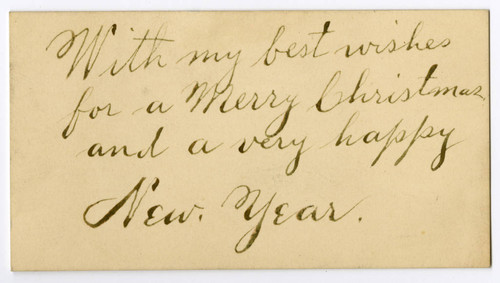 With my best wishes
for a Merry Christmas,
and a very happy
New. Year.